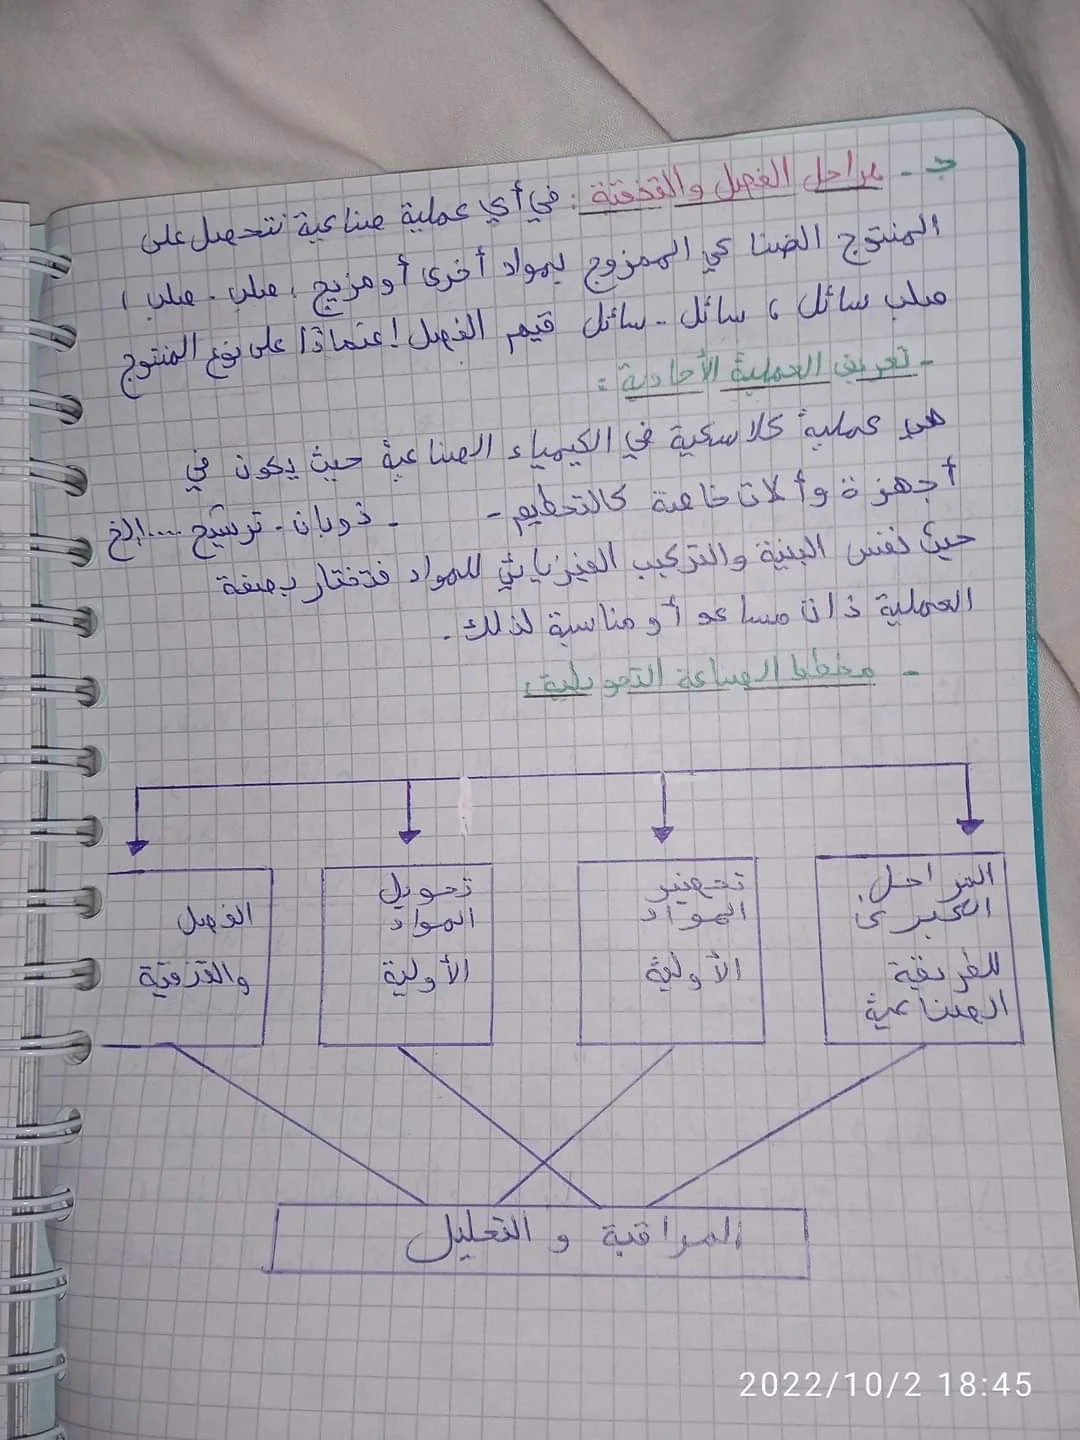 ج - مراحل الفصل والتنقية : في أي عملية صناعية نتحصل على
المنتوج الصناعي الممزوج بمواد أخرى أو مزيج ، صلب - صلب ،
صلب سائل ، سائل - سائل فيتم الفصل إعتمادًا على نوع المنتوج
- تعريف العملية الأحادية :
هي عملية كلاسكية في الكيمياء الصناعية حيث يكون في
أجهزة وألات خاصة كالتحطيم - - ذوبان - ترشيح .... إلخ
حيث نفس البنية والتركيب الفيزيائي للمواد فتختار بصفة
العملية ذات مساعد أو مناسبة لذلك .
- مخطط الصناعة التحويلية :
المراحل
الكبرى
للطريقة
الصناعية
تحضير
المواد
الأولية
تحويل
المواد
الأولية
الفصل
والتنقية
المراقبة و التحليل
2022/10/2 18:45